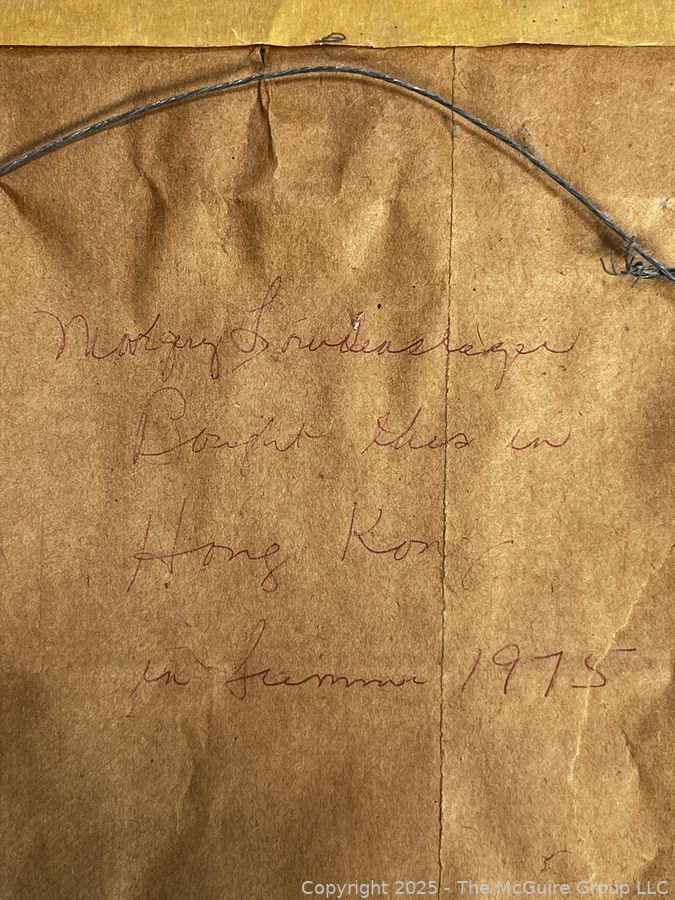 Bought this in
Hong Kong
in Summer 1975
Copyright 2025 - The McGuire Group LLC